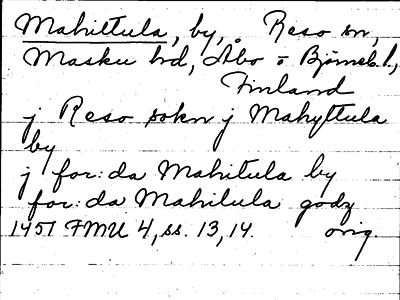 Mahittula, by, Reso sn,
Masku hd, Åbo o Björneb. l.,
Finland
j Reso sokn j Mahyttula
by
j for:da Mahitula by
for:da Mahitula godz
1451 FMU 4, ss. 13, 14. orig.